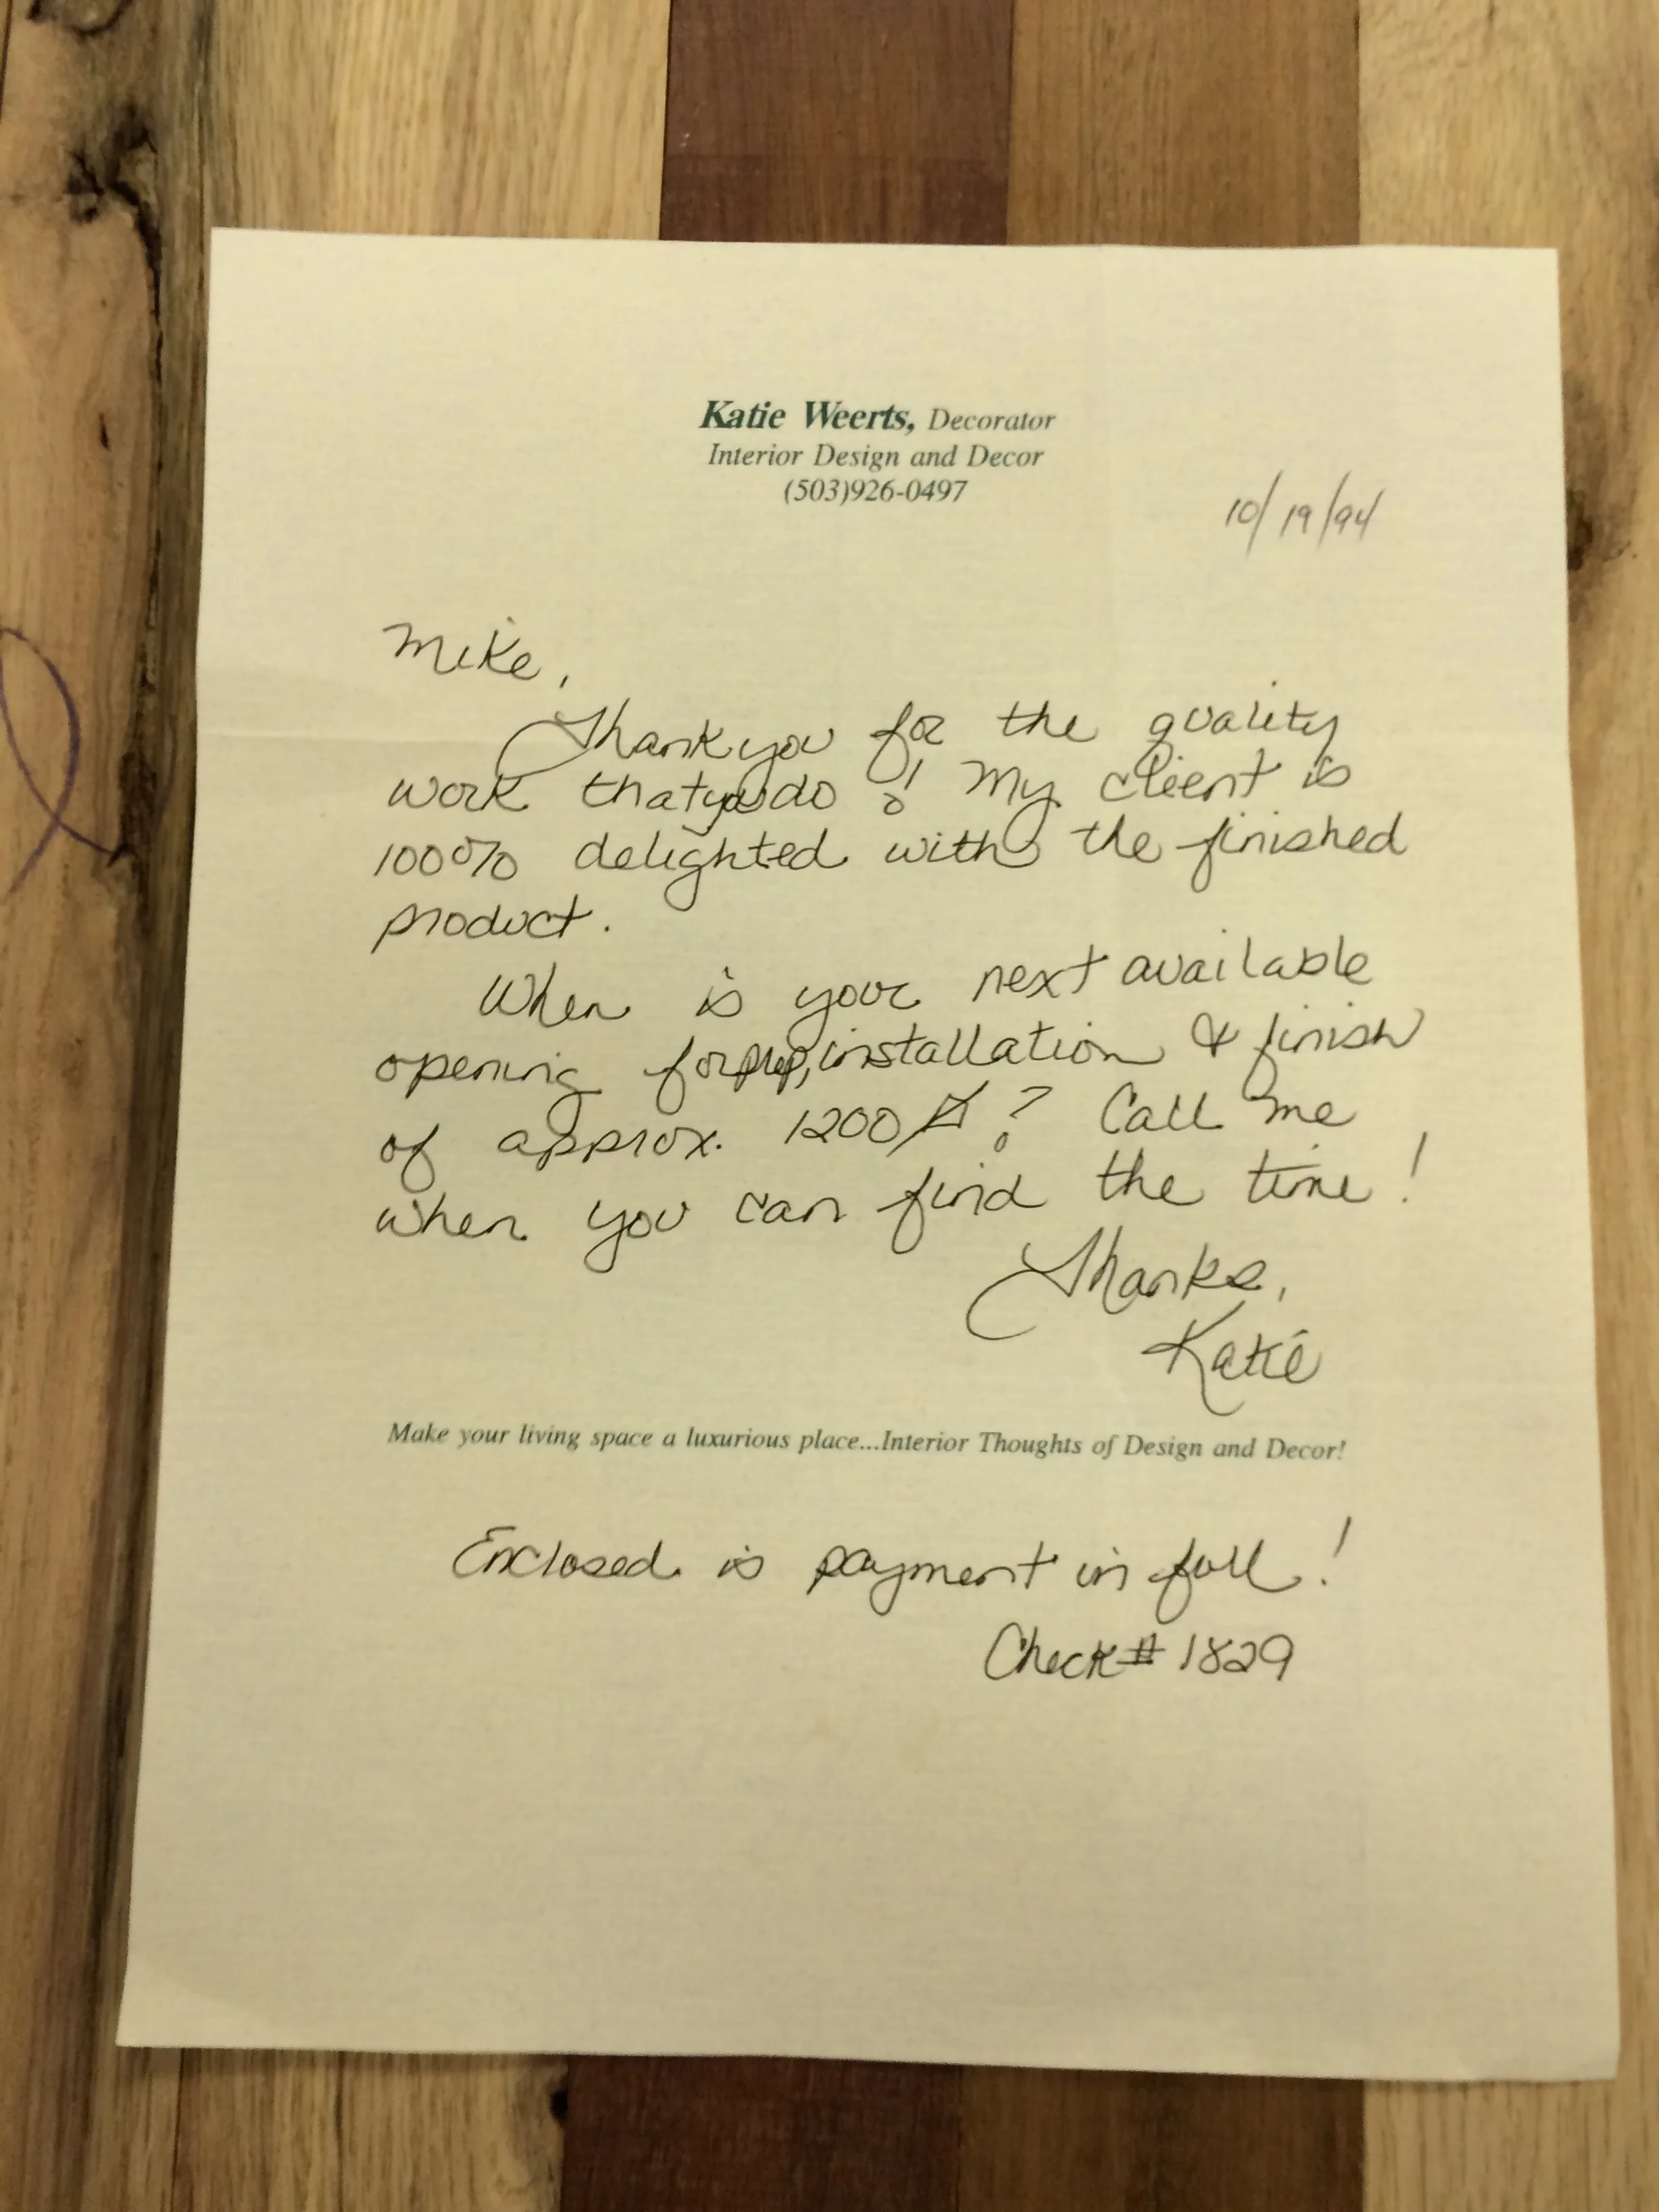 Katie Weerts, Decorator
Interior Design and Decor
(503)926-0497
10/19/94
Mike,
Thank you for the quality
work that you do! My client is
100% delighted with the finished
product.
When is your next available
opening for prep, installation & finish
of approx. 1200 ⏍? Call me
when you can find the time!
Thanks,
Katie
Make your living space a luxurious place...Interior Thoughts of Design and Decor!
Enclosed is payment in full!
Check# 1829